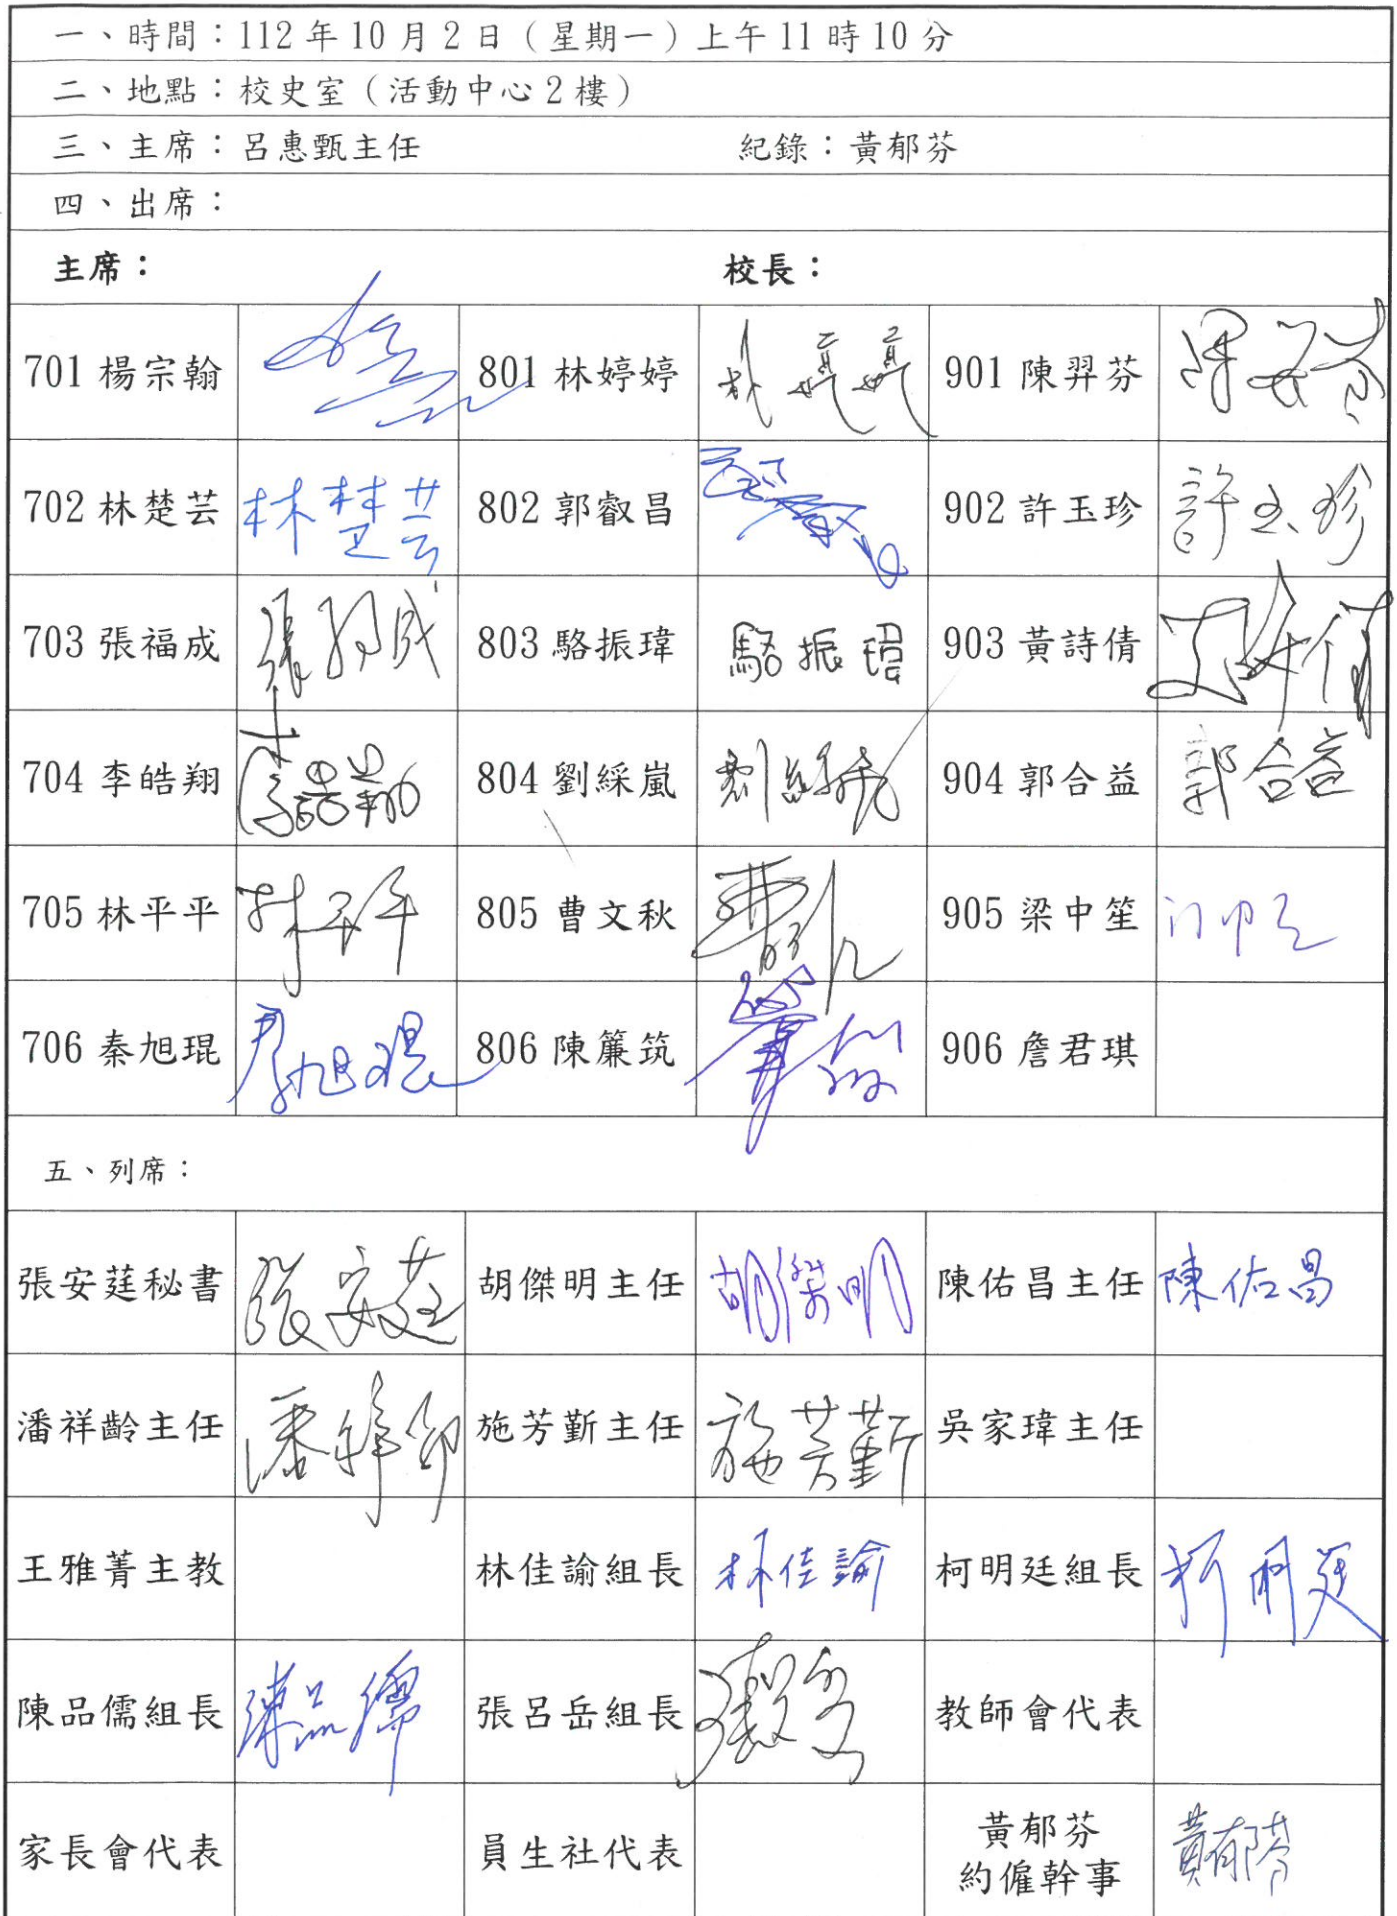 一、時間：112年10月2日（星期一）上午11時10分
二、地點：校史室（活動中心2樓）
三、主席：呂惠甄主任 紀錄：黃郁芬
四、出席：
主席： 校長：
701 楊宗翰 801 林婷婷 林婷婷 901 陳羿芬
702 林楚芸 林楚芸 802 郭叡昌 902 許玉珍 許玉珍
703 張福成 803 駱振瑋 駱振瑋 903 黃詩倩
704 李皓翔 李皓翔 804 劉綵嵐 904 郭合益 郭合益
705 林平平 林平平 805 曹文秋 905 梁中笙
706 秦旭琨 秦旭琨 806 陳簾筑 906 詹君琪
五、列席：
張安莛秘書 張安莛 胡傑明主任 胡傑明 陳佑昌主任 陳佑昌
潘祥齡主任 潘祥齡 施芳斳主任 施芳斳 吳家瑋主任
王雅菁主教 林佳諭組長 林佳諭 柯明廷組長 柯明廷
陳品儒組長 陳品儒 張呂岳組長 教師會代表
家長會代表 員生社代表 黃郁芬 黃郁芬
約僱幹事